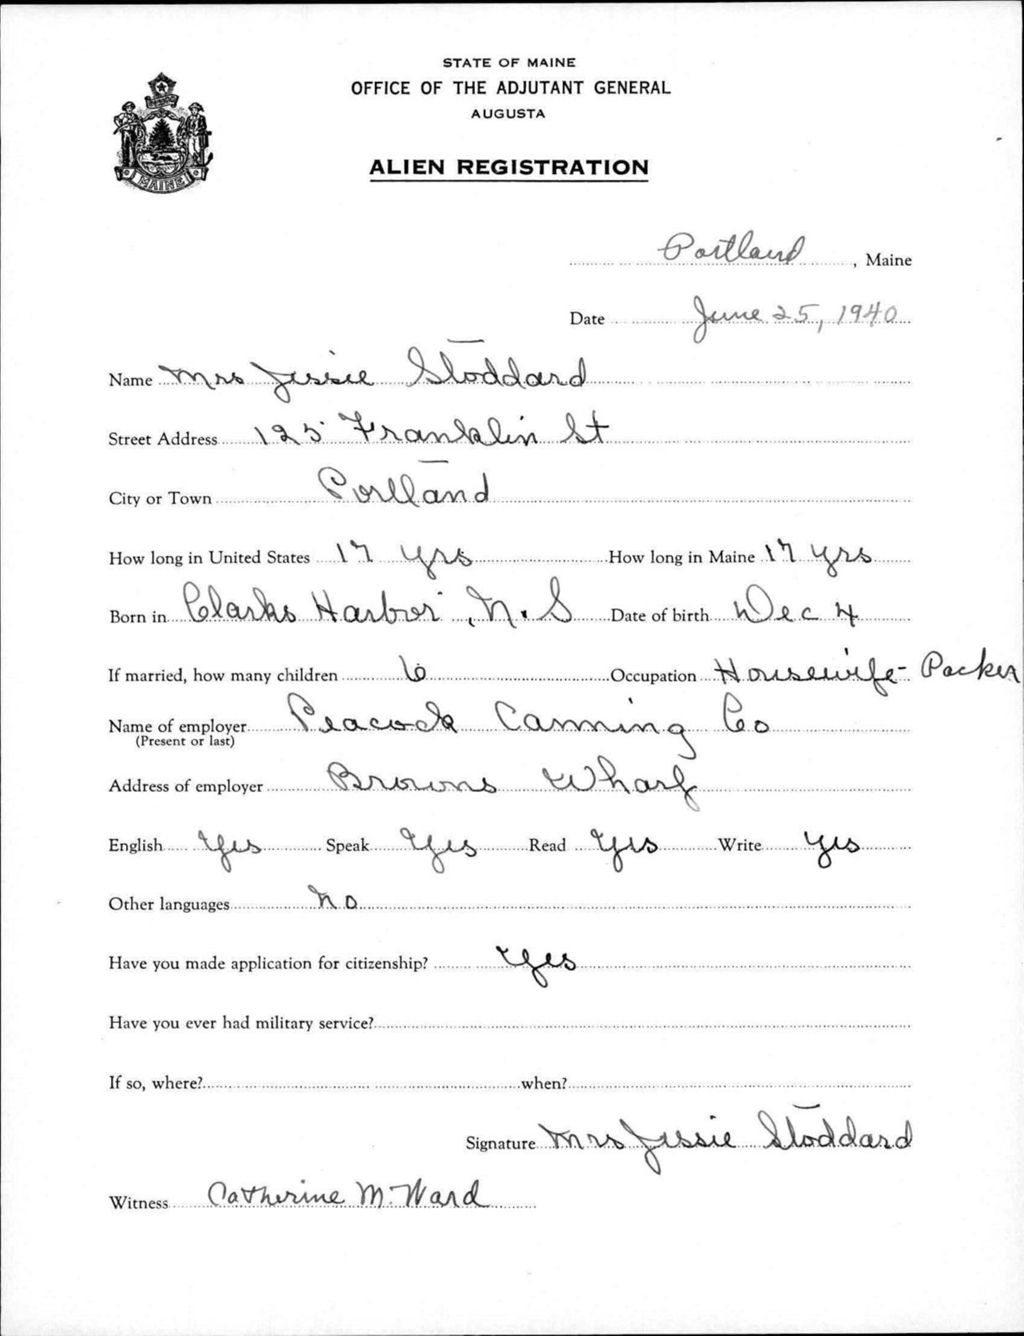 STATE OF MAINE
OFFICE OF THE ADJUTANT GENERAL
AUGUSTA
ALIEN REGISTRATION
MAINE
Portland, Maine
Date June 25, 1940
Name Mrs Jessie Stoddard
Street Address 125 Franklin St
City or Town Portland
How long in United States 17 yrs How long in Maine 17 yrs
Born in Clarks Harbor, N.S Date of birth Dec 4
If married, how many children 6 Occupation Housewife - Packer
Name of employer Peacock Canning Co
(Present or last)
Address of employer Browns Wharf
English Yes Speak Yes Read Yes Write Yes
Other languages No
Have you made application for citizenship? Yes
Have you ever had military service?
If so, where? when?
Signature Mrs Jessie Stoddard
Witness Catherine M. Ward